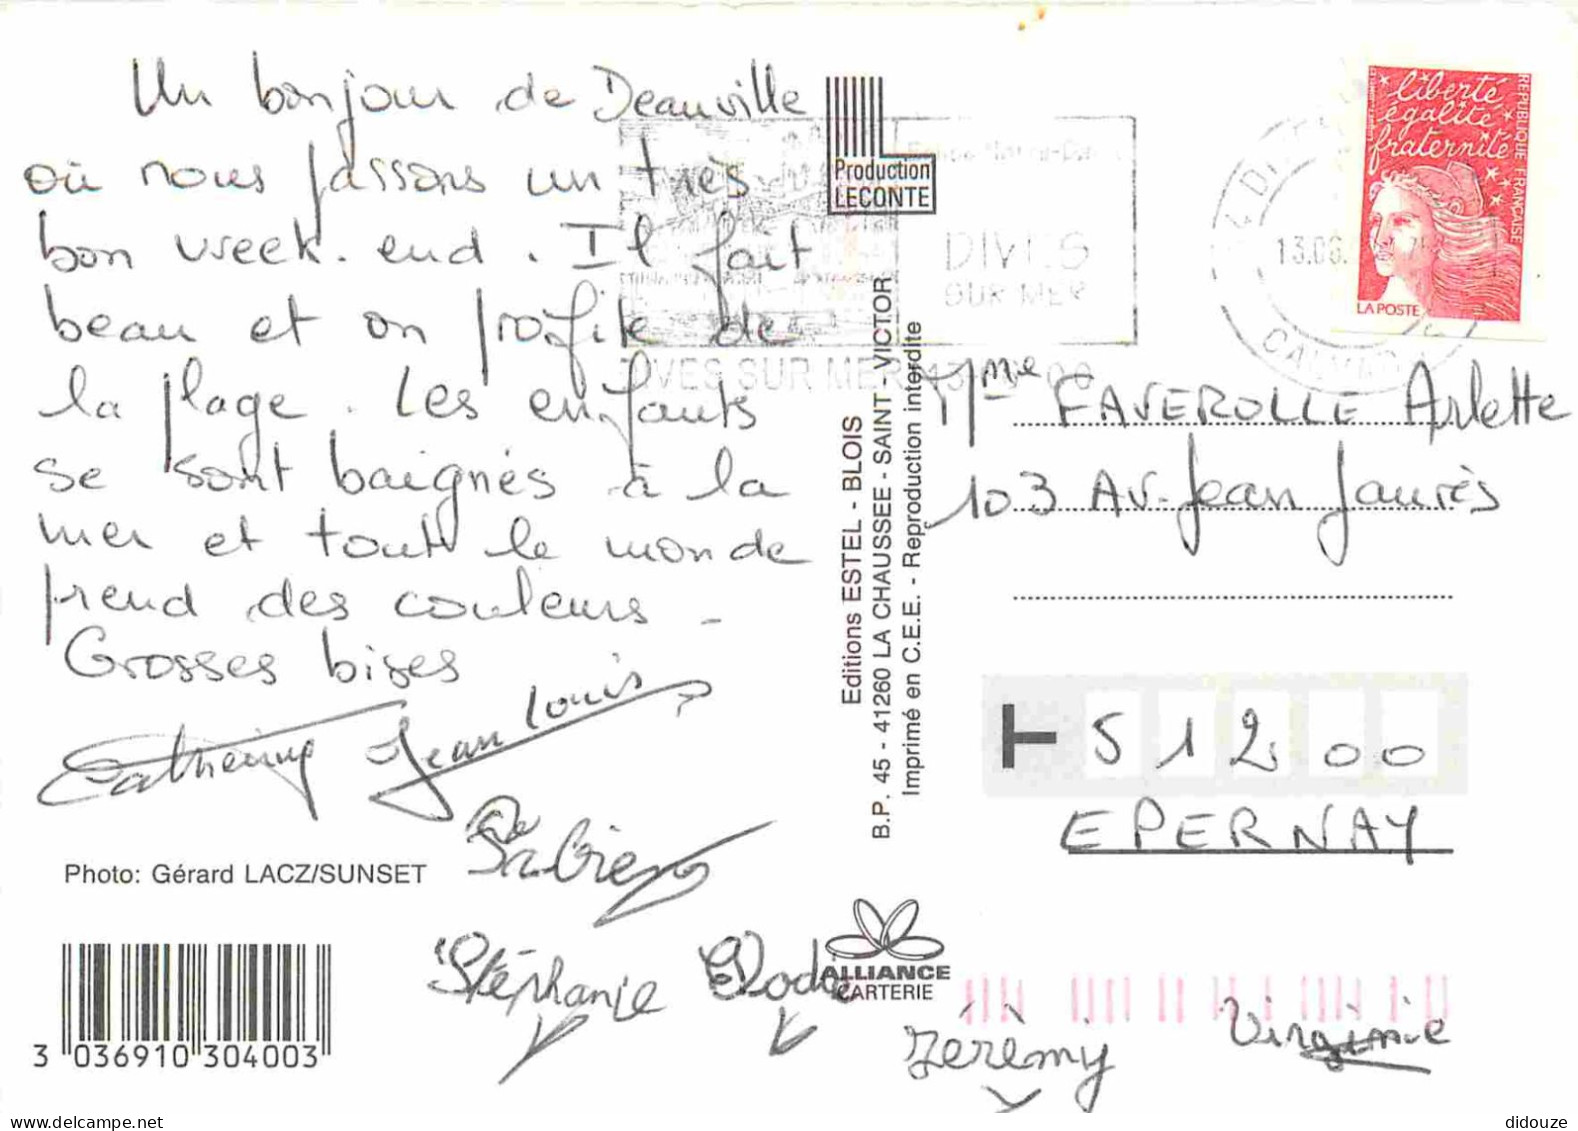 Un bonjour de Deauville
où nous passons un très
bon week-end. Il fait
beau et on profite de
la plage. Les enfants
se sont baignés à la
mer et tout le monde
prend des couleurs -
Grosses bises
Catherine Jean Louis
Stéphanie Elodie
Jérèmy
Virginie
Photo: Gérard LACZ/SUNSET
3 036910 304003
Production
LECONTE
Editions ESTEL - BLOIS
B.P. 45 - 41260 LA CHAUSSEE - SAINT - VICTOR
Imprimé en C.E.E. - Reproduction interdite
ALLIANCE
CARTERIE
DIVES
SUR MER
DIVES SUR MER
13.06.
CALVADOS
liberté
égalité
fraternité
REPUBLIQUE FRANCAISE
LA POSTE
Mme FAVEROLLE Arlette
103 Av. Jean Jaurès
51200
EPERNAY
didouze